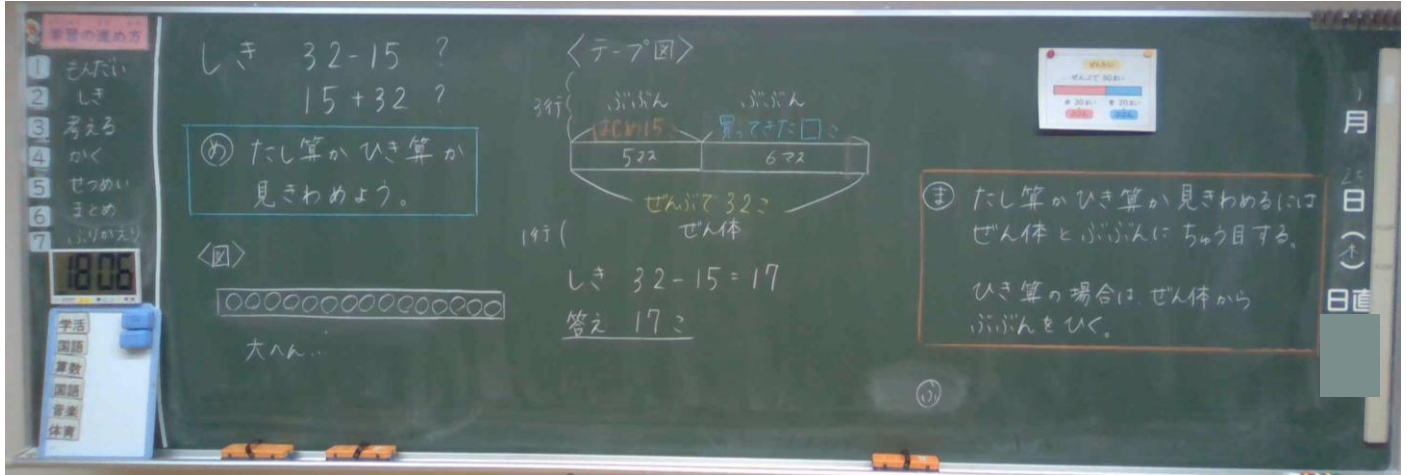 学習の進め方
1 もんだい
2 しき
3 考える
4 かく
5 せつめい
6 まとめ
7 ふりかえり
18:06
学活
国語
算数
国語
音楽
体育
しき 32-15 ?
15+32 ?
め たし算かひき算か
見きわめよう。
〈図〉
○○○○○○○○○○○○○○○
大へん…
〈テープ図〉
3行
ぶぶん ぶぶん
はじめ15こ 買ってきた□こ
5マス 6マス
ぜんぶで32こ
1行
ぜん体
しき 32-15=17
答え 17こ
ぜんたい
ぜんぶで 50まい
赤 30まい 青 20まい
ぶぶん ぶぶん
ま たし算かひき算か見きわめるには
ぜん体とぶぶんにちゅう目する。
ひき算の場合は、ぜん体から
ぶぶんをひく。
ふ
1月
25日(木)
日直